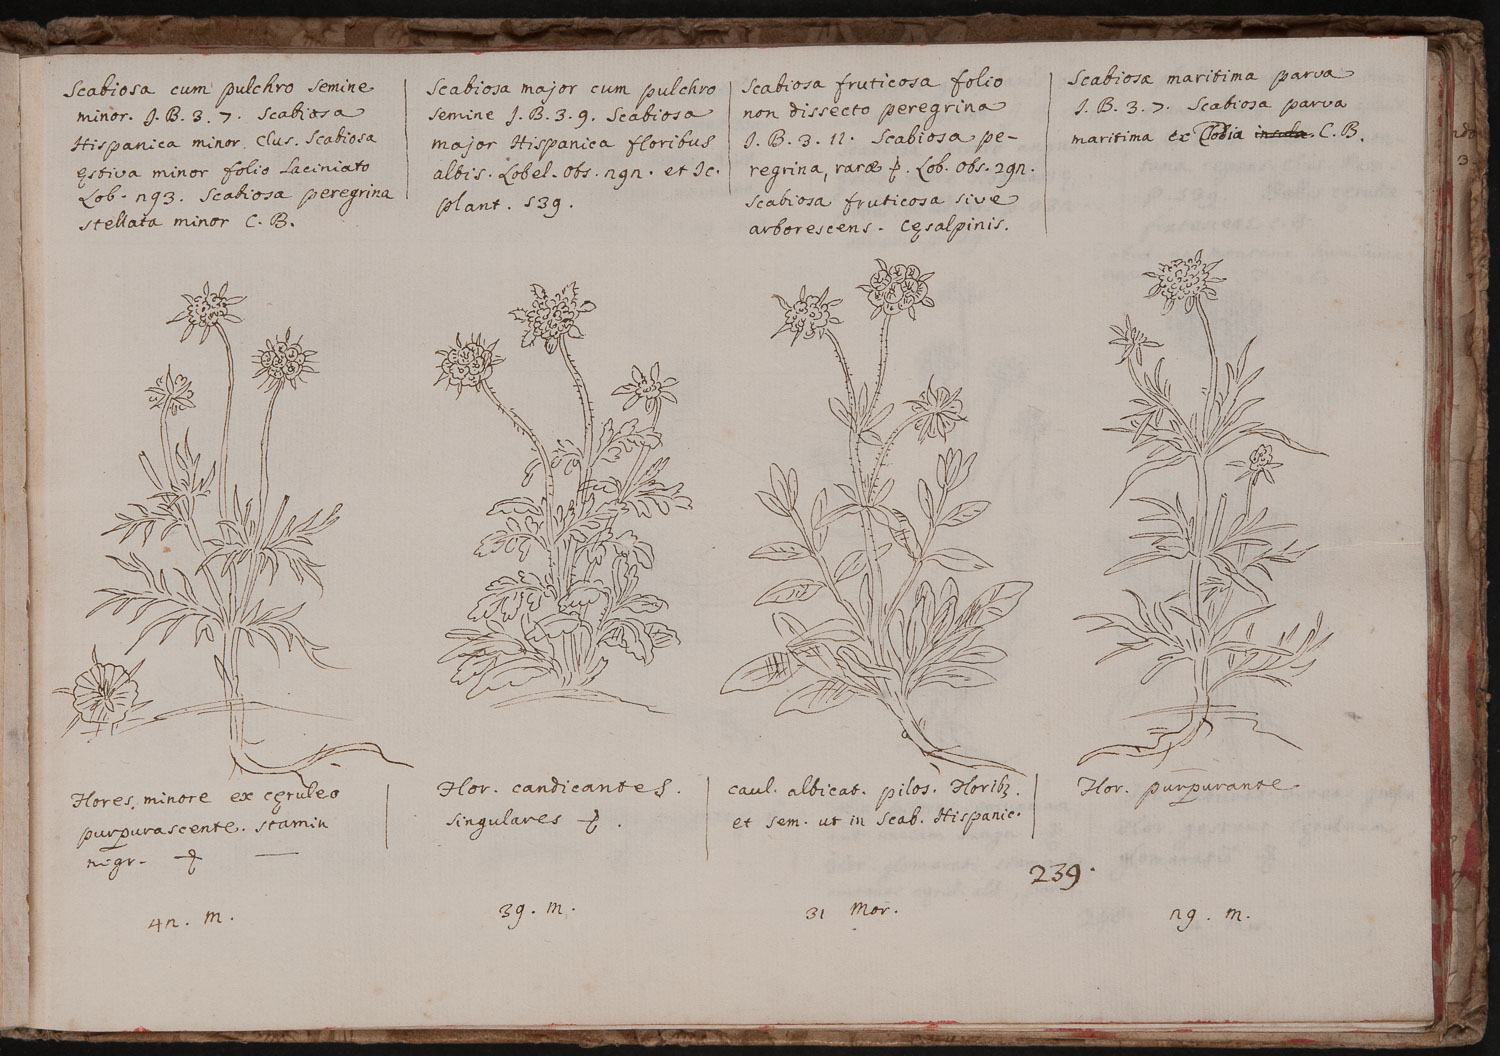 Scabiosa cum pulchro semine
minor. J. B. 3. 7. Scabiosa
Hispanica minor. Clus. Scabiosa
ęstiva minor folio Laciniato
Lob. n93. Scabiosa peregrina
stellata minor C. B.
Scabiosa major cum pulchro
semine J. B. 3. 9. Scabiosa
major Hispanica floribus
albis. Lobel. obs. n9n. et Ic.
plant. 539.
Scabiosa fruticosa folio
non dissecto peregrina
J. B. 3. 11. Scabiosa pe-
regrina, raræ Lob. obs. 29n.
Scabiosa fruticosa sive
arborescens. Cęsalpinis.
Scabiosæ maritima parva
J. B. 3. 7. Scabiosa parva
maritima ex insula C. B.
Flores minore ex cęruleo
purpurascente. stamin
nigr.
4n. m.
Flor. candicantes.
singulares
39. m.
caul. albicat. pilos. Floribz.
et sem. ut in Scab. Hispanic.
31 Mor.
Flor. purpurante
239.
n9. m.